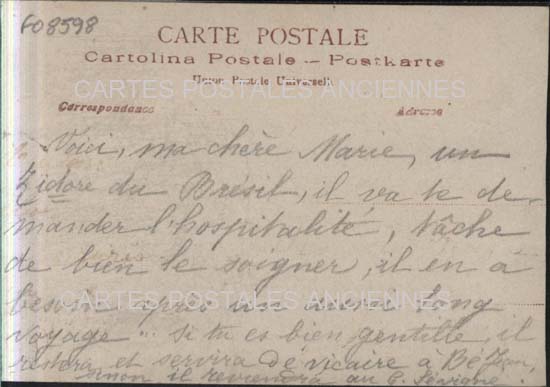 F08598
CARTE POSTALE
Cartolina Postale – Postkarte
Union Postale Universelle
CARTES POSTALES ANCIENNES
Correspondance
Adresse
Voici, ma chère Marie, un
Zidore du Brésil, il va te de-
mander l'hospitalité, tâche
de bien le soigner, il en a
besoin après un aussi long
CARTES POSTALES ANCIENNES
voyage... Si tu es bien gentille, il
restera et servira de vicaire à
sinon il reviendra au